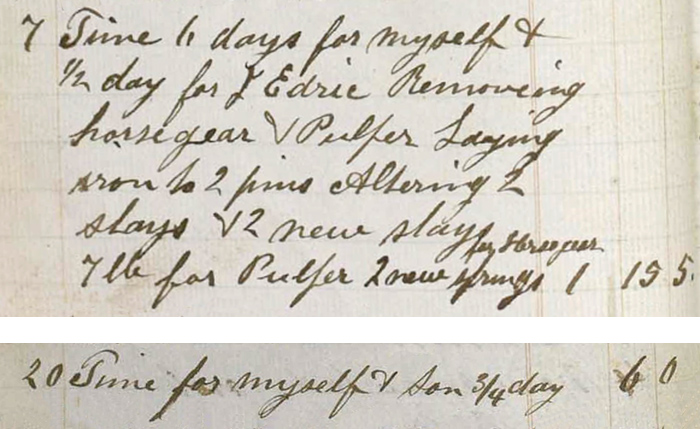 7 Time 4 days for myself &
1/2 day for J Edric Removeing
horsegear & Pulper Laying
iron to 2 pins Altering 2
stays & 2 new stays
for Horsegear
7 lb for Pulper 2 new springs 1 15 5
20 Time for myself & Son 3/4 day 6 0